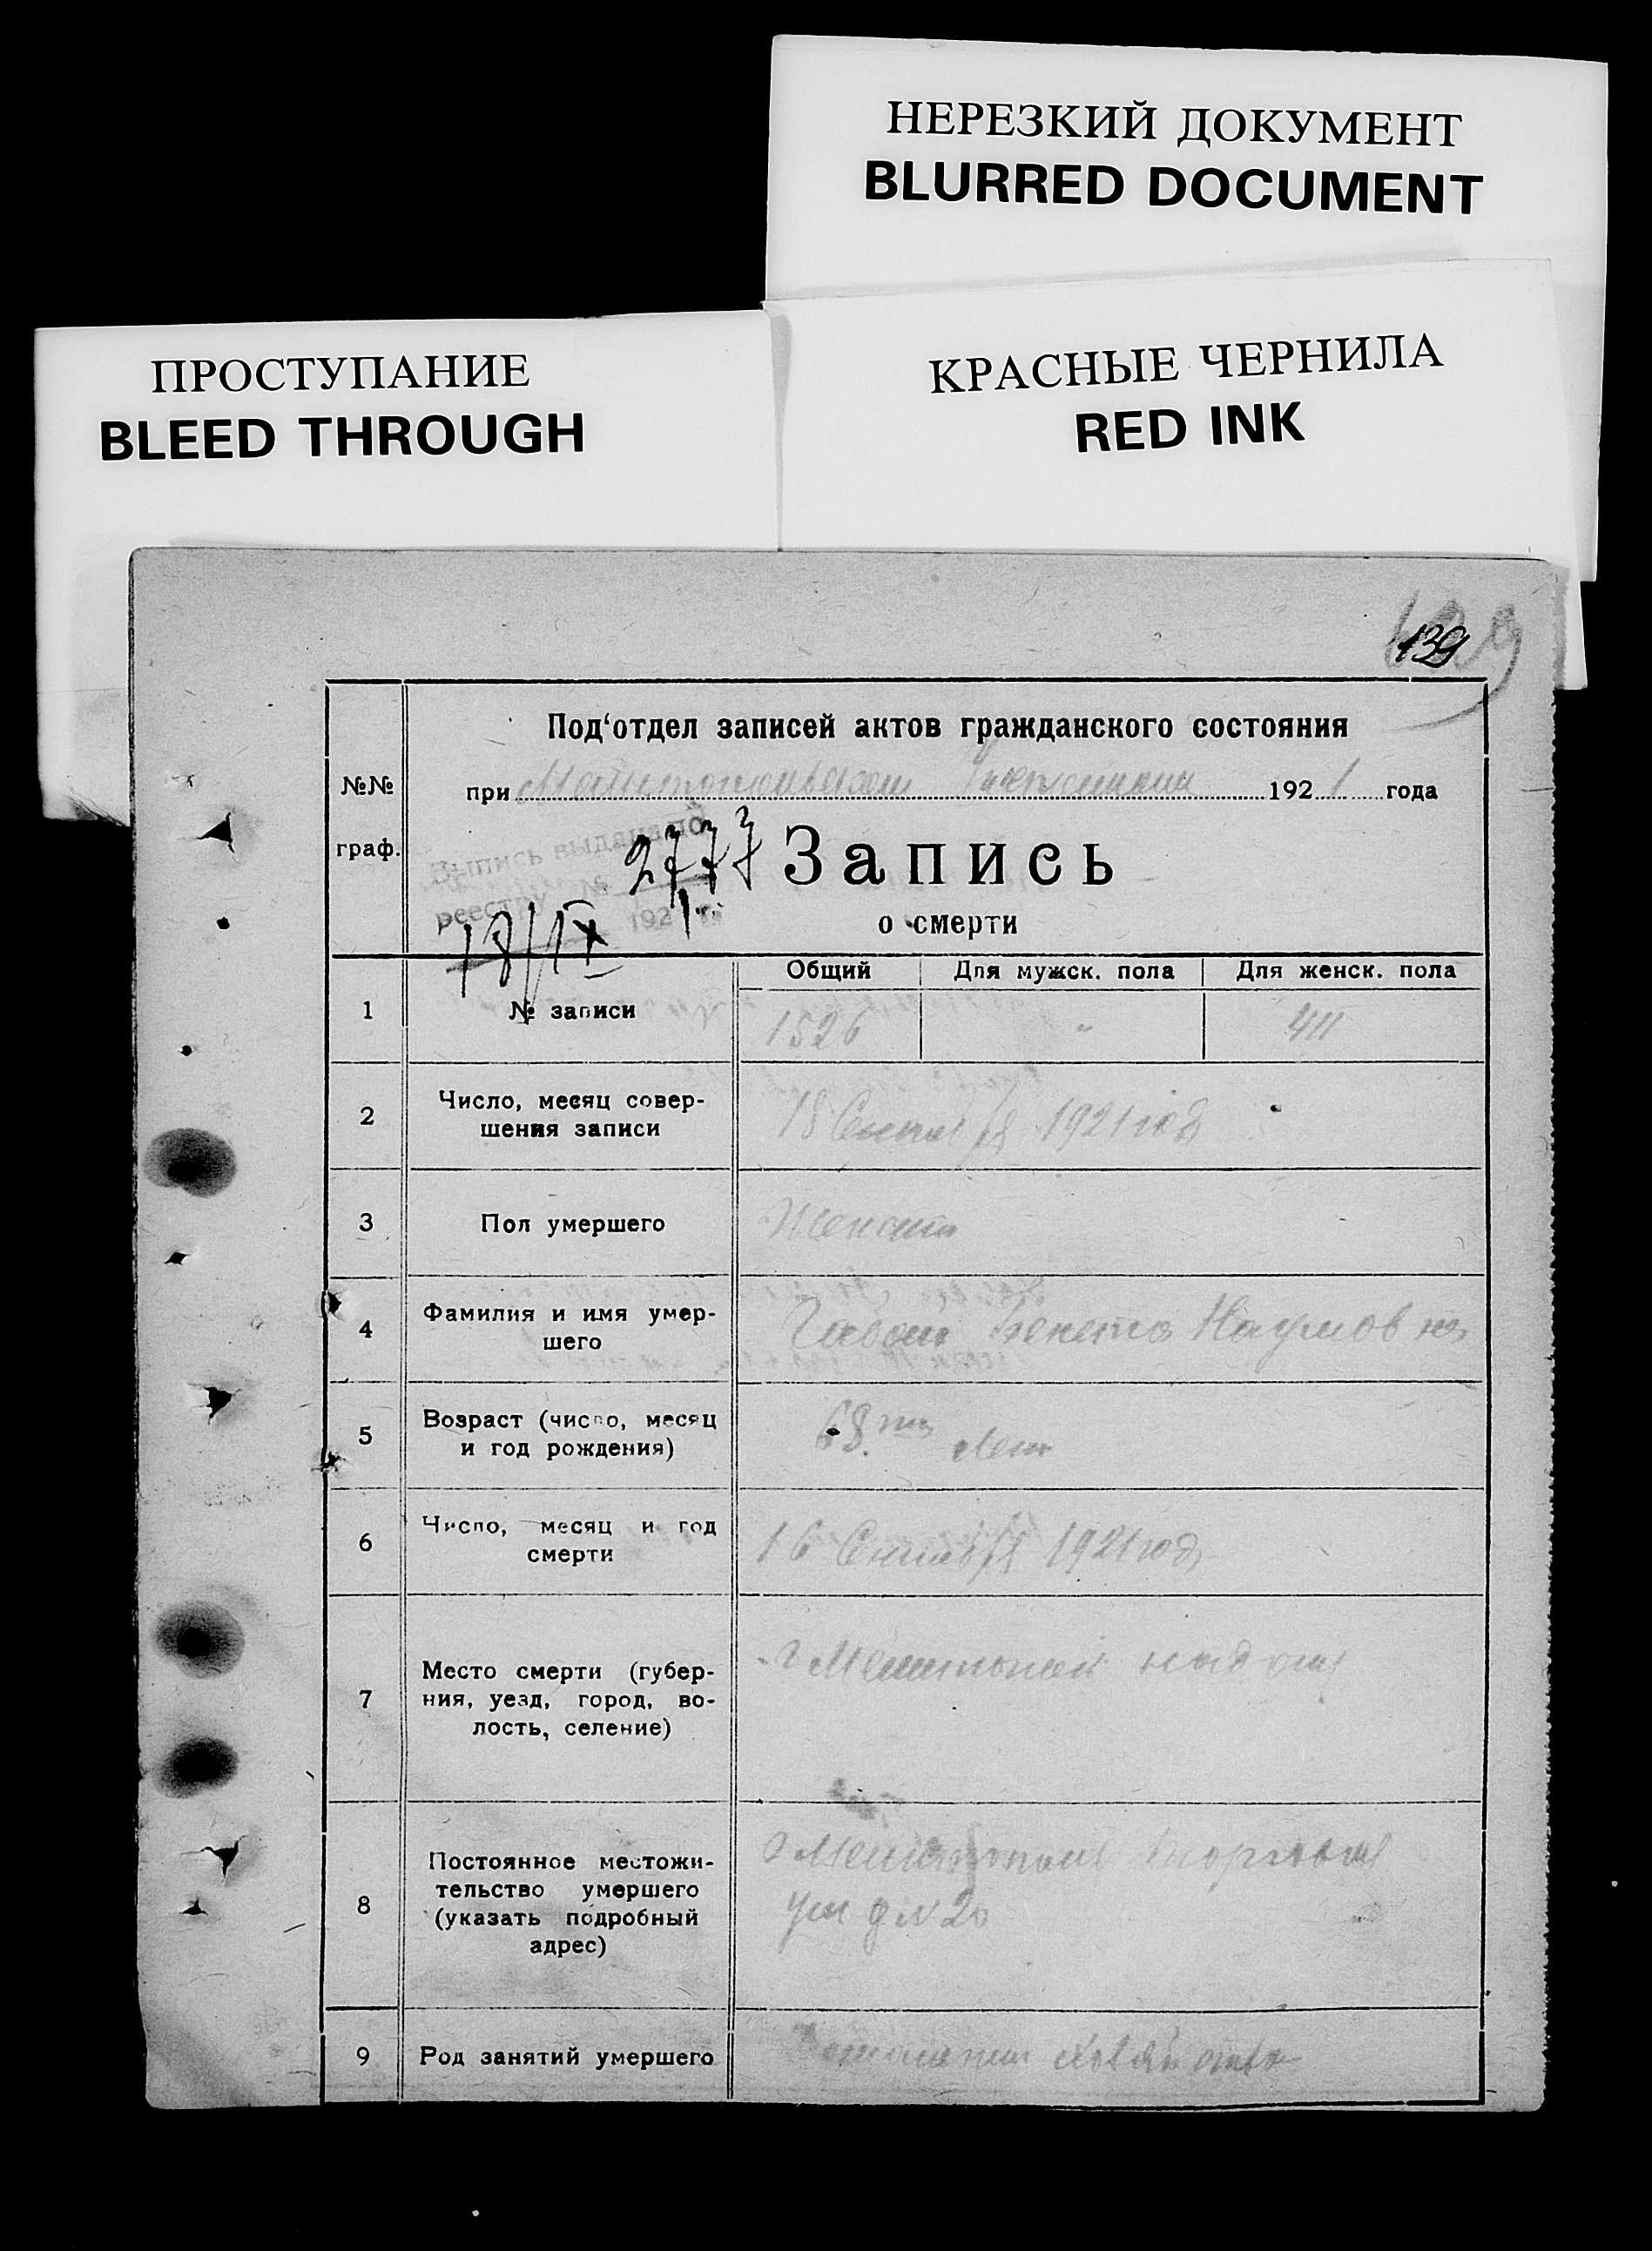 НЕРЕЗКИЙ ДОКУМЕНТ
BLURRED DOCUMENT
ПРОСТУПАНИЕ
BLEED THROUGH
КРАСНЫЕ ЧЕРНИЛА
RED INK
139
Под‘отдел записей актов гражданского состояния
№№ граф.
при 192 1 года
Выпись выдана по
реестру № 2777
18/IX 1921
Запись
о смерти
Общий Для мужск. пола Для женск. пола
1 № записи 1526 " 411
2 Число, месяц совер-
шения записи 18 Сентября 1921 год
3 Пол умершего
4 Фамилия и имя умер-
шего Наумовна
5 Возраст (число, месяц
и год рождения) 68 лет
6 Число, месяц и год
смерти 16 Сентября 1921 год
7 Место смерти (губер-
ния, уезд, город, во-
лость, селение) г Мелитополь
8 Постоянное местожи-
тельство умершего
(указать подробный
адрес) г Мелитополь Торговая
ул д N 20
9 Род занятий умершего